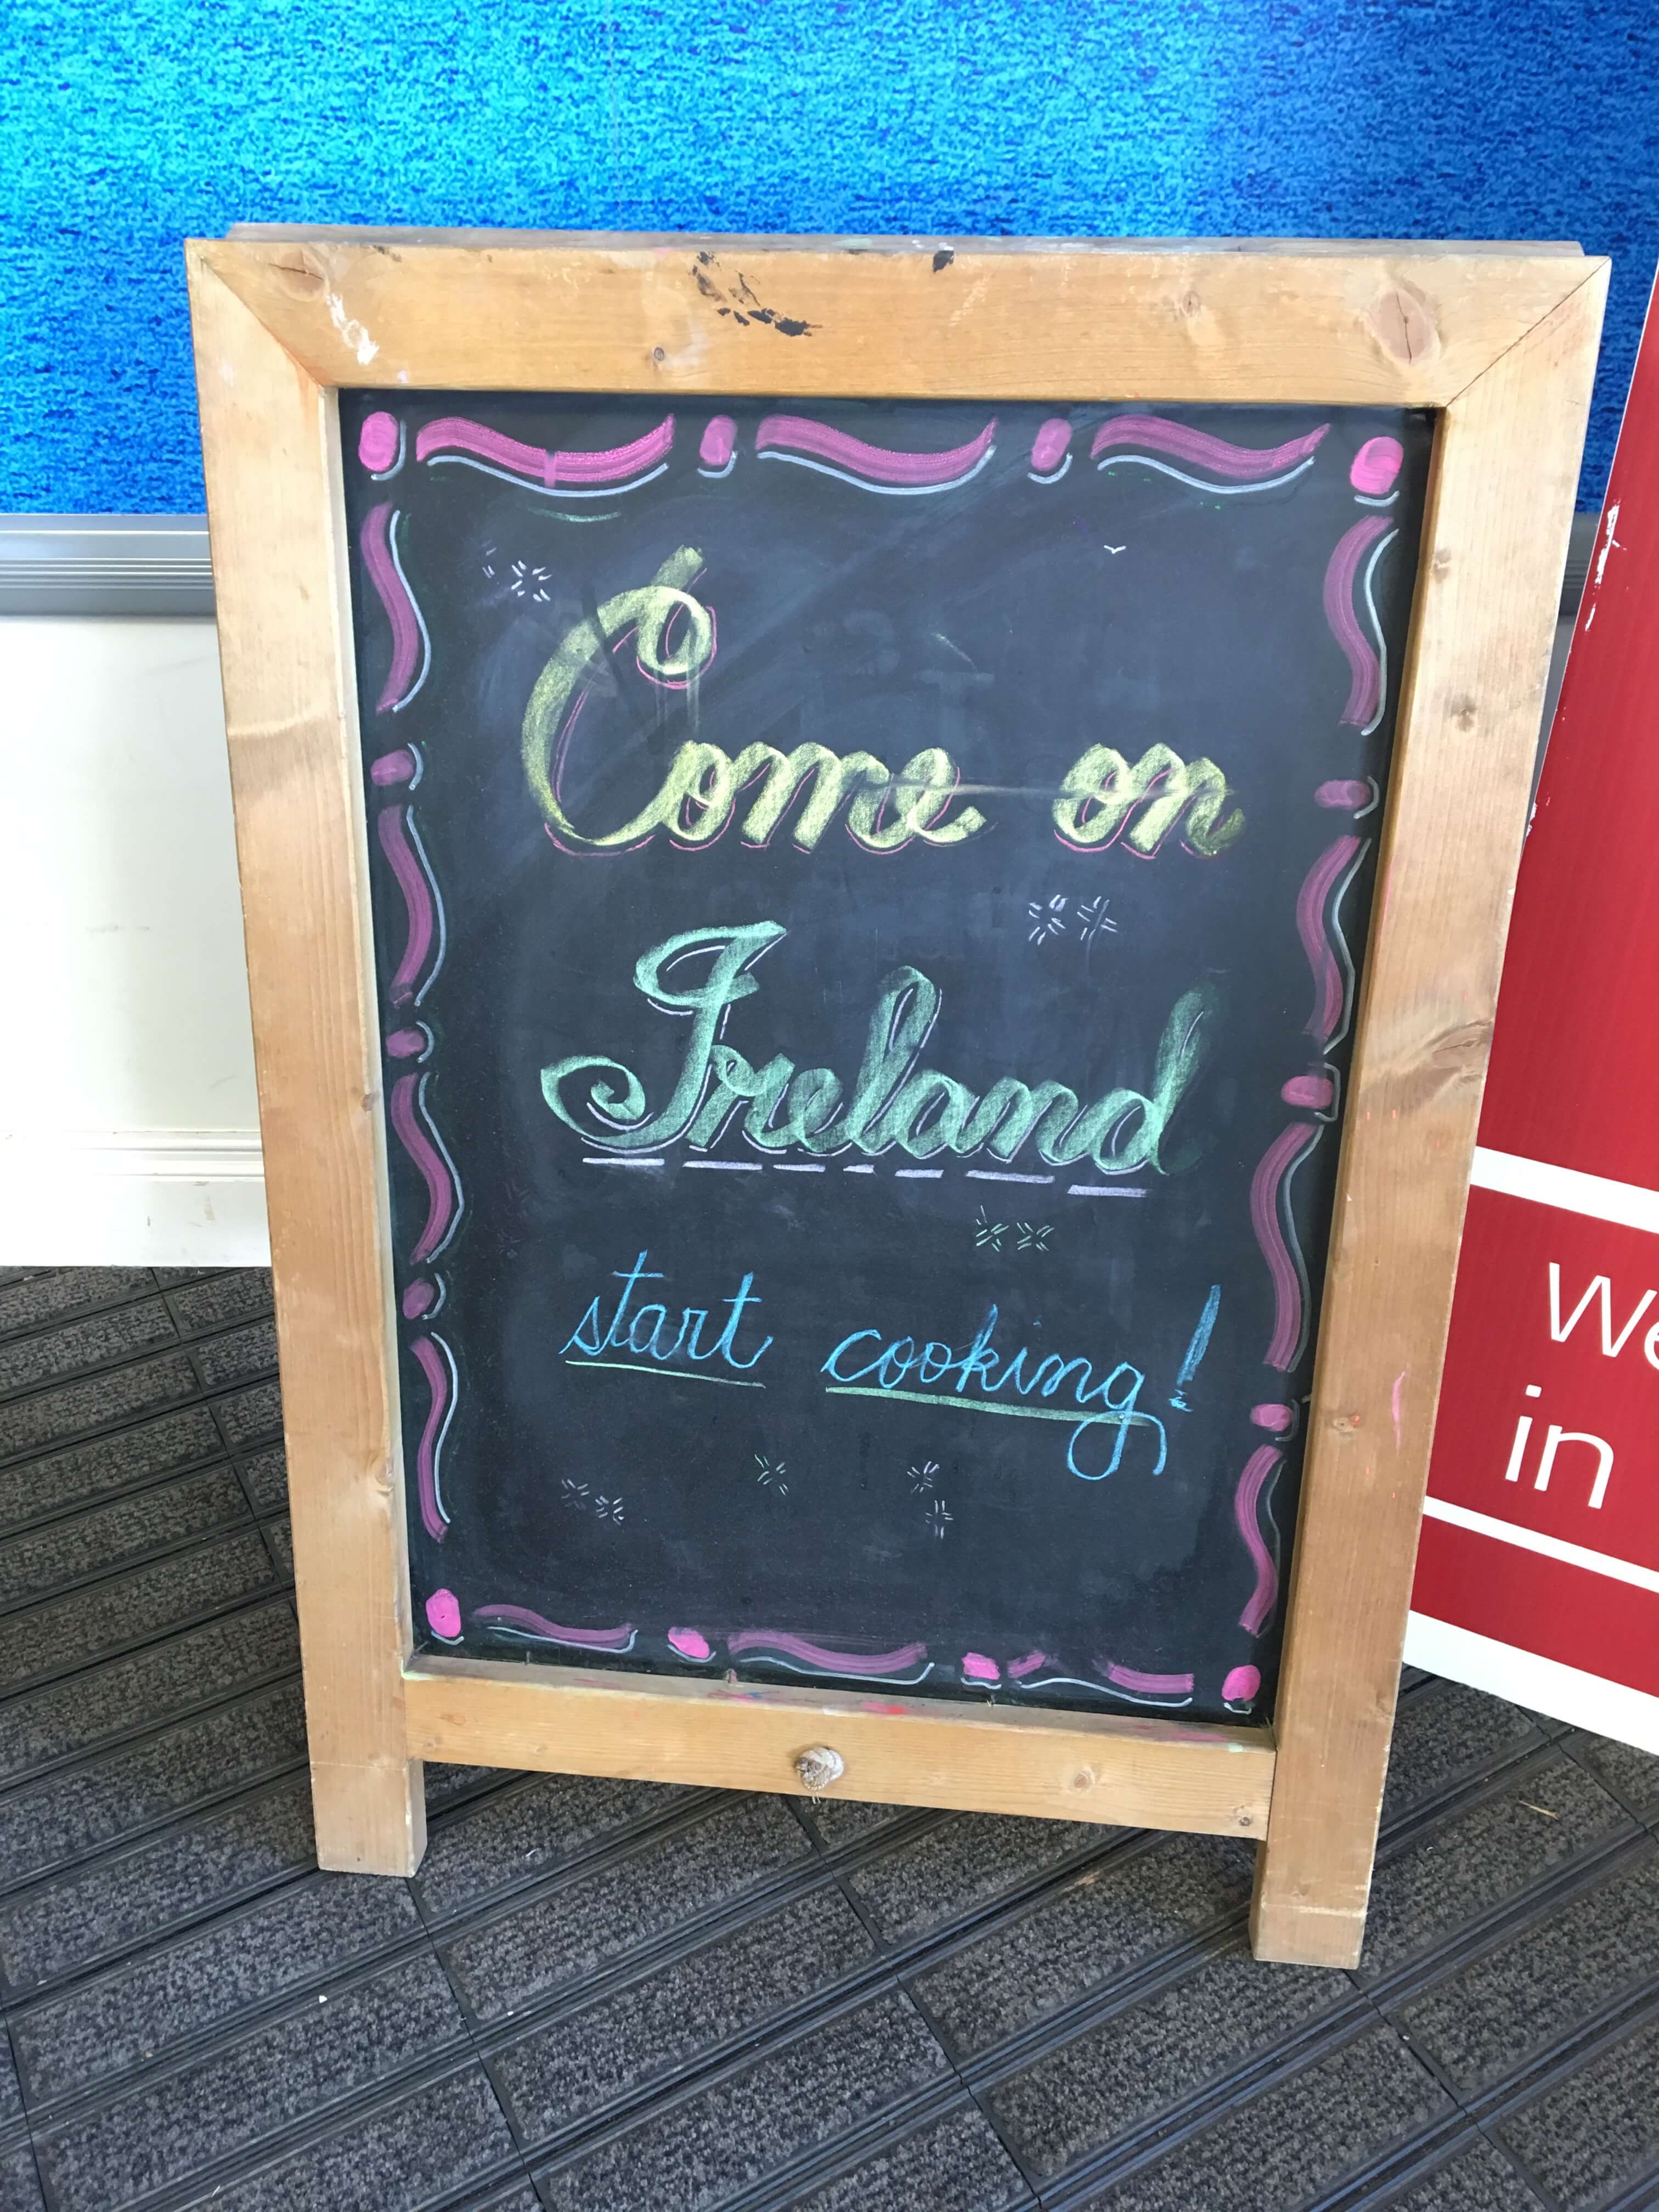 Come on
Ireland
start cooking!
We
in